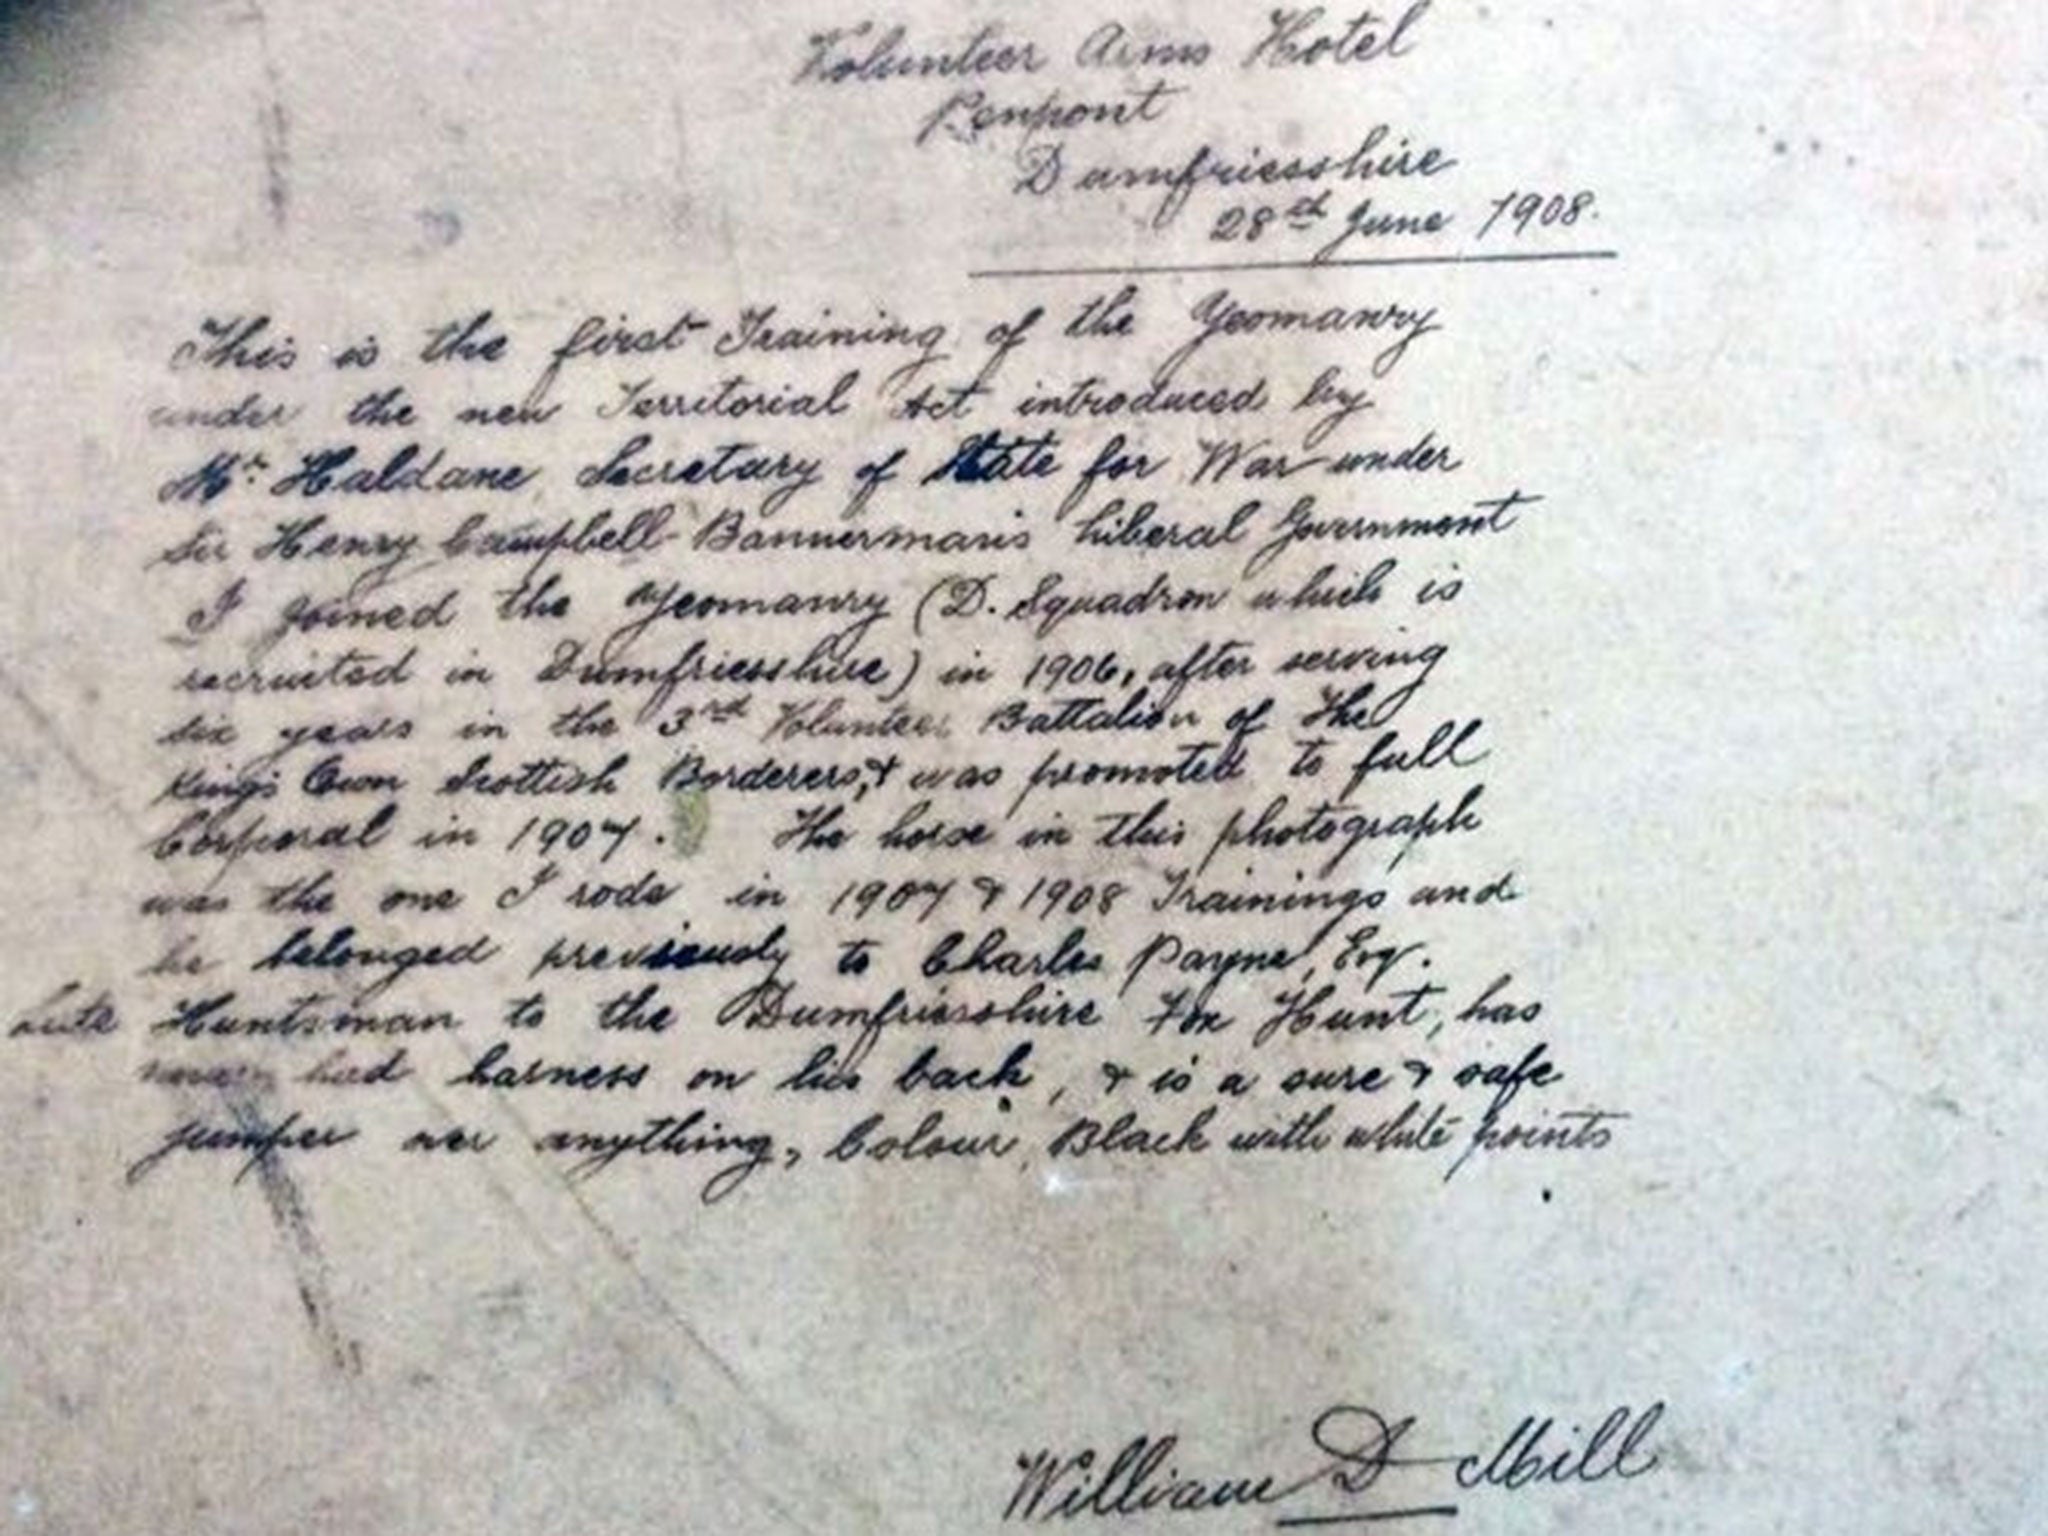 Volunteer Arms Hotel
Penpont
Dumfriesshire
28th June 1908.
This is the first Training of the Yeomanry
under the new Territorial Act introduced by
Mr. Haldane, Secretary of State for War under
Sir Henry Campbell-Bannerman's Liberal Government
I joined the Yeomanry (D. Squadron which is
recruited in Dumfriesshire) in 1906, after serving
six years in the 3rd Volunteer Battalion of The
King's Own Scottish Borderers, & was promoted to full
Corporal in 1907. The horse in this photograph
was the one I rode in 1907 & 1908 Trainings and
he belonged previously to Charles Payne, Esq.
Late Huntsman to the Dumfriesshire Fox Hunt, has
never had harness on his back, & is a sure & safe
jumper over anything, Colour, Black with white points
William D Mill